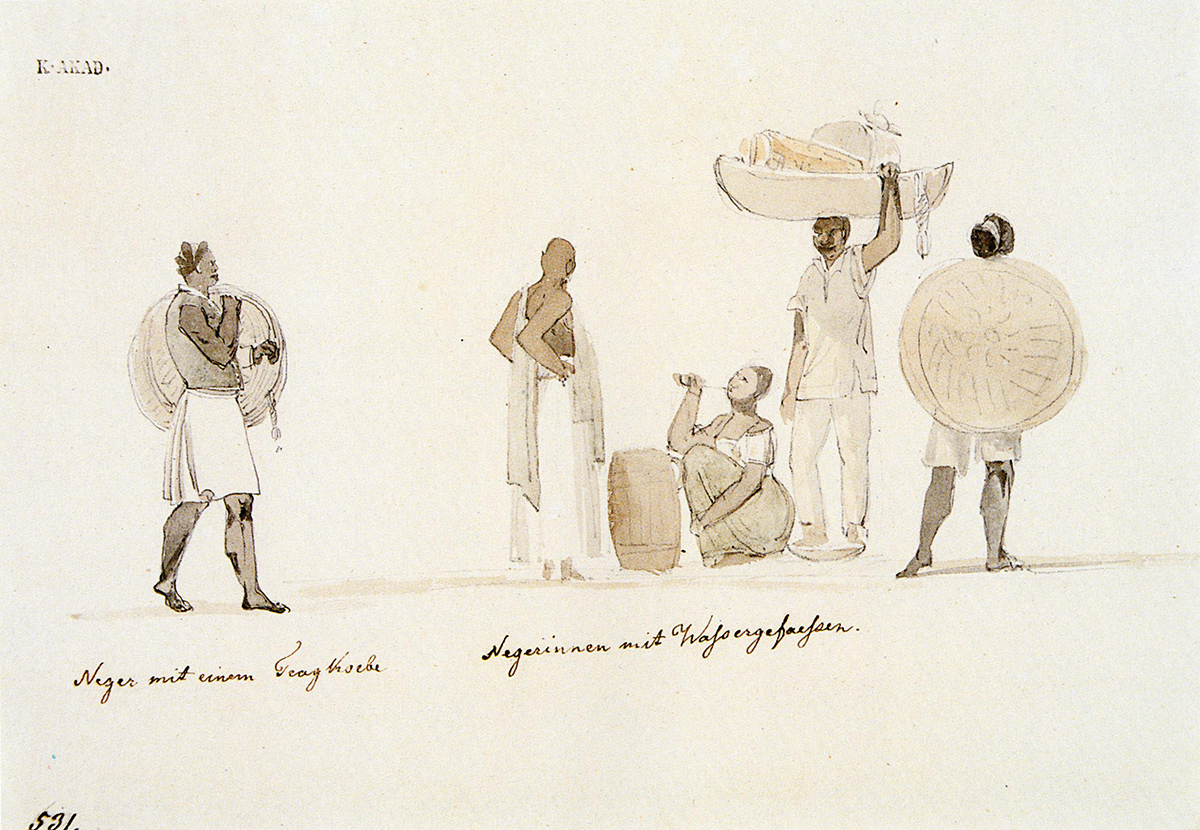 K·AKAD·
Neger mit einem Tragkorbe
Negerinnen mit Waſsergefaeſsen.
531.